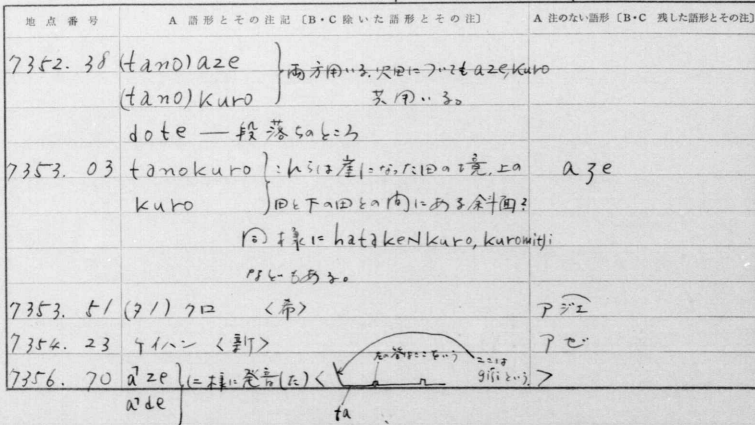 地点番号 A 語形とその注記〔B・C 除いた語形とその注〕 A 注のない語形〔B・C 残した語形とその注〕
7352. 38 (tano) aze } 両方用いる。沢田についてもaze, kuro
(tano) kuro 共用いる。
dote — 段落ちのところ
7353. 03 tanokuro } これらは崖になった田の境、上の aze
kuro 田と下の田との間にある斜面を
同様に hatakeNkuro, kuromitʃi
などもある。
7353. 51 (タノ) クロ 〈希〉 アジェ
7354. 23 ケイハン 〈新〉 アゼ
7356. 70 aze } 二様に発音(た) < ここは
ade giʃi という >
ta